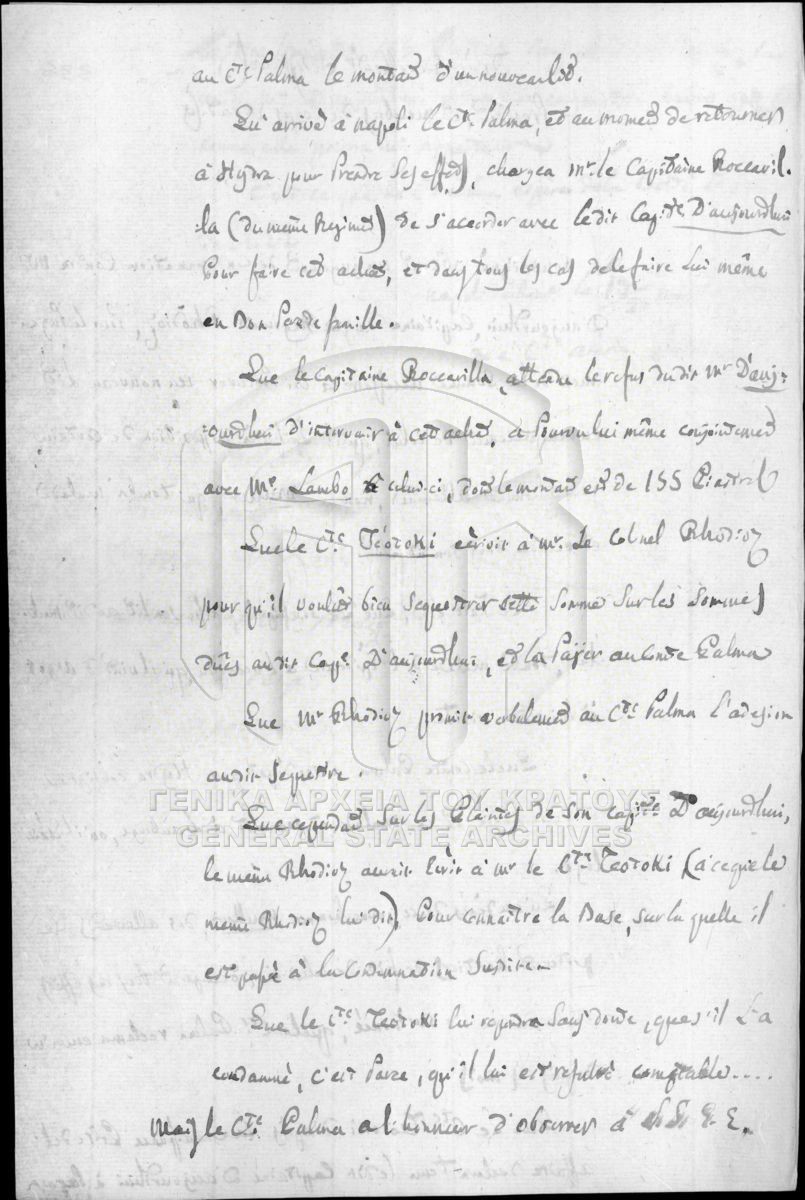 au Cte Palma le montant d'un nouveau lit.
Qu'arrivé à napoli le Cte Palma, et au moment de retourner
à Hydra pour Prendre Ses effets, chargea Mr. le Capitaine Roccavil-
:la (du même Regiment) de S'accorder avec le dit Capite. D'aujourdhui
Pour faire cet achat, et dans tous les cas de le faire Lui même
en Bon Per de famille.
Que le Capitaine Roccavilla, attendu le refus du dit Mr D'auj=
:ourdhui d'intervenir à cet achat, a Pourvu lui même conjointement
avec Mr. Lambo celui-ci, dont le montant est de 155 Piastres
Que le Cte Téotoki écrivit à Mr. Le Colnel Rhodioz
pour qu'il voulut bien Sequestrer cette Somme Sur les Sommes
dues au dit Cape. D'aujourdhui, et la Payer au Conte Palma
Que Mr Rhodioz promit verbalement au Cte Palma l'adesion
au dit Sequestre.
ΓΕΝΙΚΑ ΑΡΧΕΙΑ ΤΟΥ ΚΡΑΤΟΥΣ
GENERAL STATE ARCHIVES
Que cependant Sur les Plaintes de Son Capite D'aujourdhui,
le même Rhodioz aurait Ecrit à Mr le Cte Teotoki (à ce que le
même Rhodioz lui dit), Pour connaître la Base, sur la quelle il
est passé à la Condamnation Susdite.
Que le Cte Teotoki lui repondra Sans doute, que s'il L'a
condamné, c'est Parce, qu'il lui est resulté comptable....
Mais le Cte Palma a l'honneur d'observer à E.